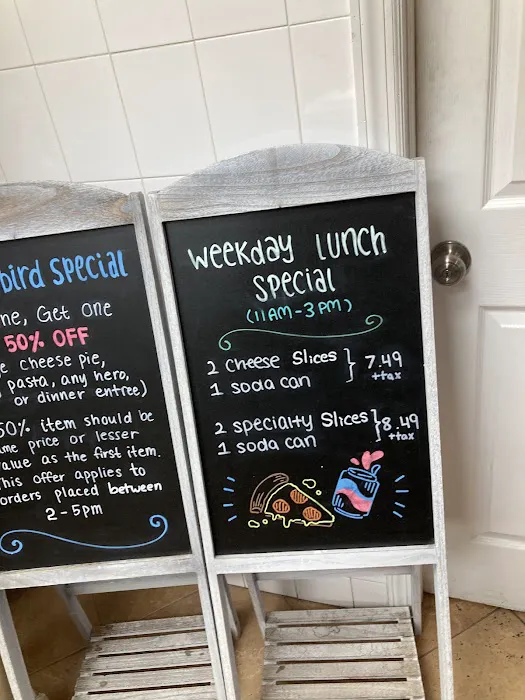 bird Special
ne, Get One
50% OFF
e cheese pie,
pasta, any hero,
or dinner entree)
50% item should be
me price or lesser
value as the first item.
This offer applies to
orders placed between
2-5pm
Weekday Lunch
Special
(11AM-3PM)
2 Cheese Slices } 7.49
1 soda can +tax
2 Specialty Slices } 8.49
1 soda can +tax